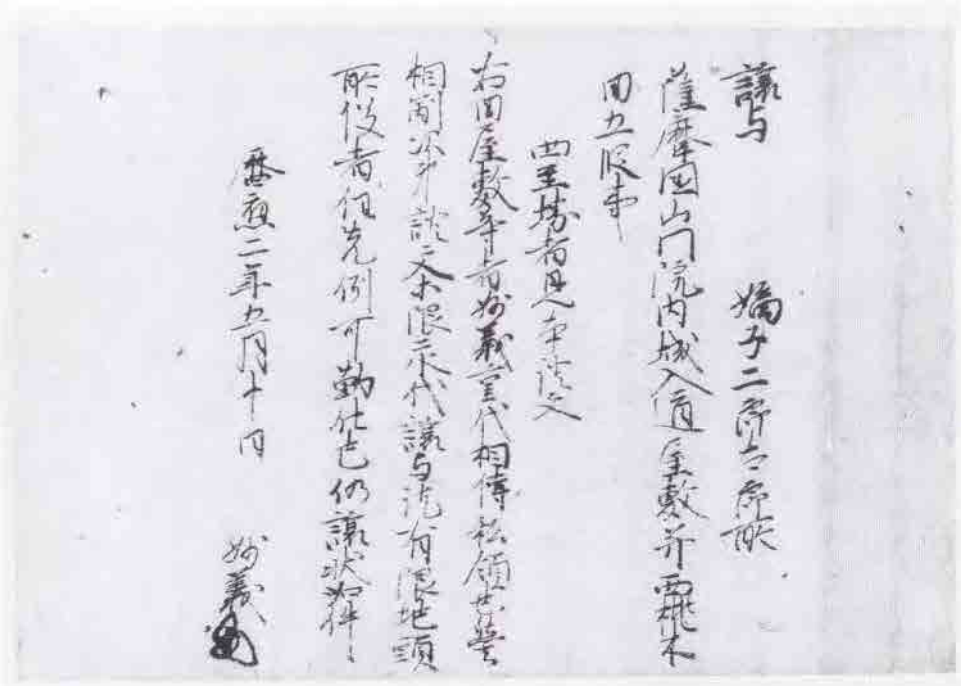 譲与　嫡子二郎太郎所
薩摩国山門院内城入道屋敷并西桃木
田五段事
四至堺者見本証文
右田屋敷等者妙義重代相傳私領也
相副次第證文等限永代譲与訖有限地頭
所役者任先例可勤仕也仍譲状如件
暦應二年五月十日　妙義